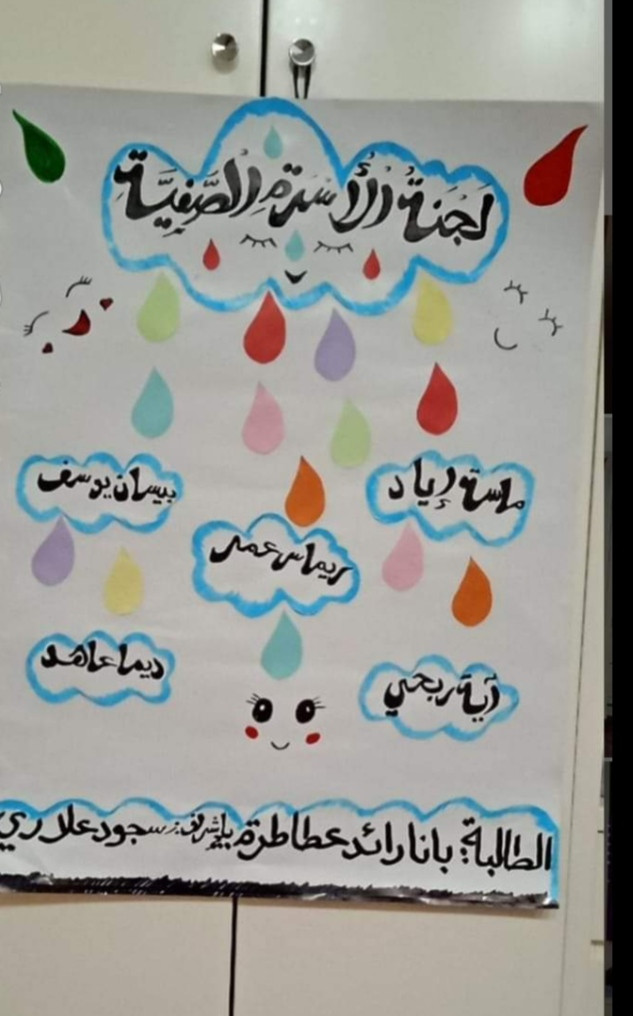 لَجْنَةُ الْأُسْرَةِ الصَّفِيَّةِ
ماسة إياد
بيسان يوسف
ريماس عمر
آية ربحي
ديما عاهد
الطالبة: بانا رائد عطاطرة بإشراف: سجود علاري